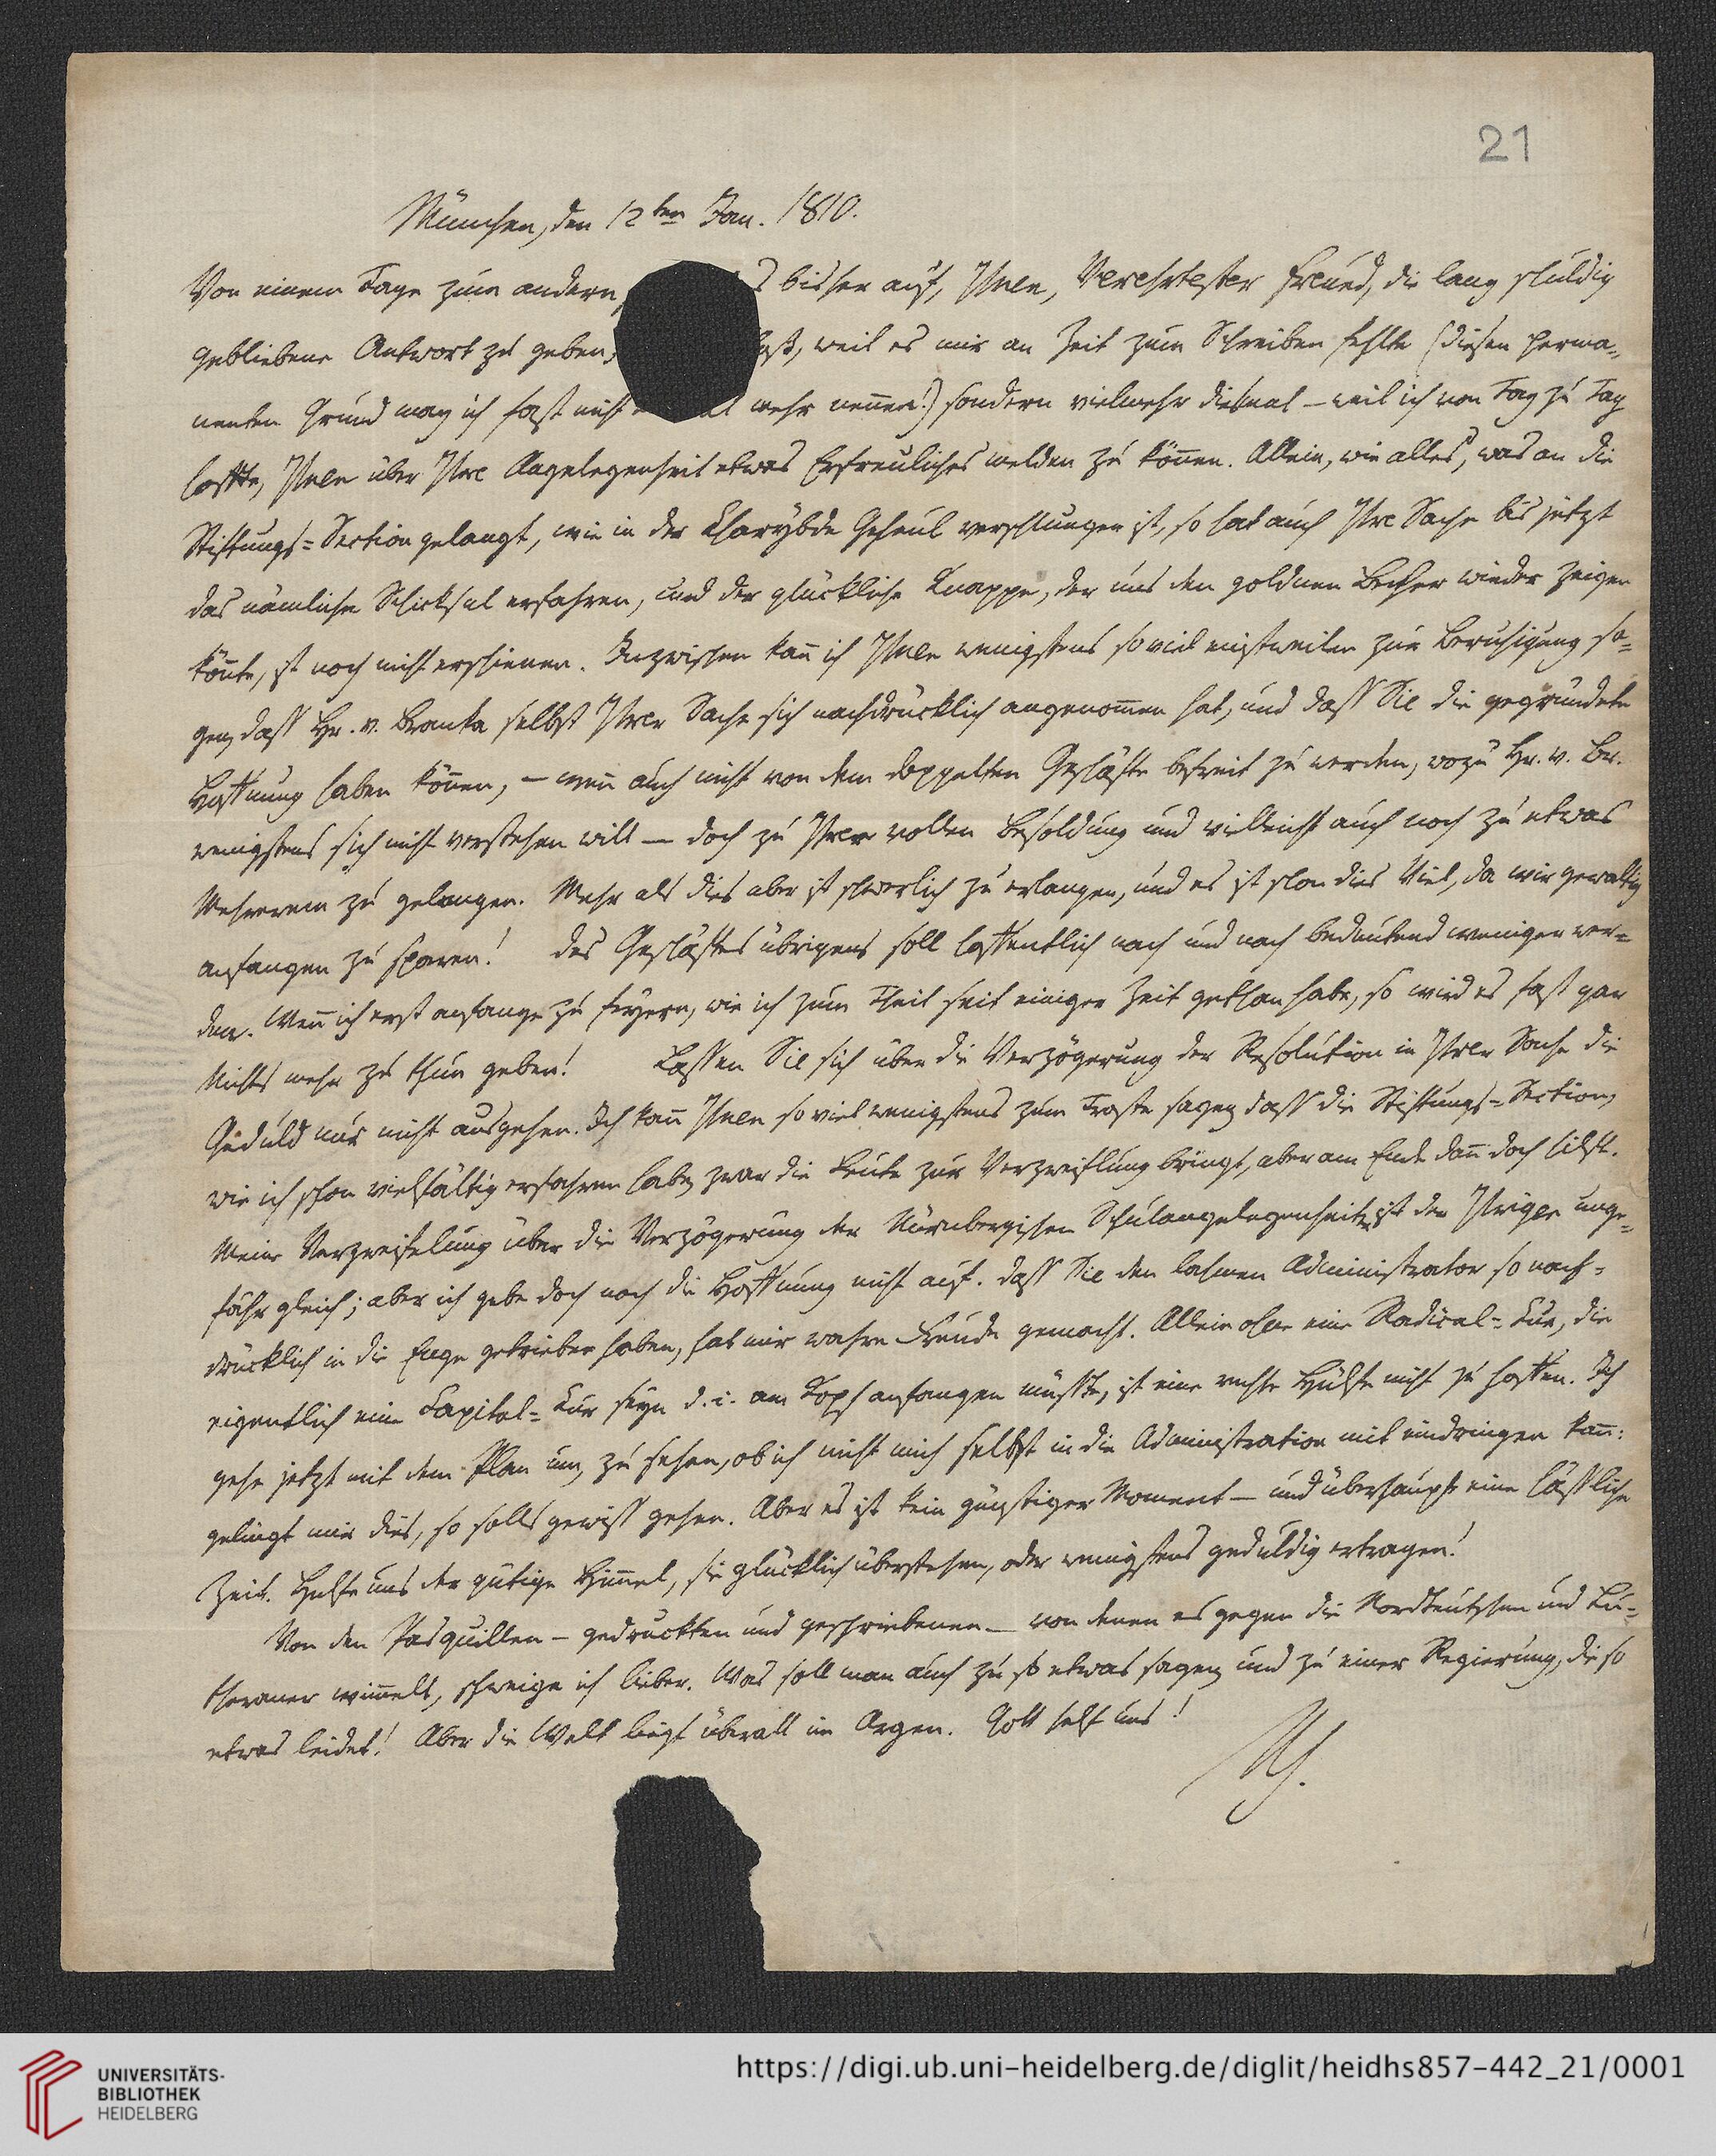 21
München, den 12ten Jan. 1810.
Von einem Tage zum andern, s bisher auf, Ihnen, Verehrtester Freund, die lang schuldig
gebliebene Antwort zu geben, weil es mir an Zeit zum Schreiben fehlte (diesen perma-
nenten Grund mag ich fast nicht mehr nennen!) sondern vielmehr diesmal – weil ich von Tag zu Tag
hoffte, Ihnen über Ihre Angelegenheit etwas Erfreuliches melden zu können. Allein, wie alles, was an die
Stiftungs-Section gelangt, wie in der Charybde Geheul verschlungen ist, so hat auch Ihre Sache bis jetzt
das nämliche Schicksal erfahren, und der glückliche Knappe, der uns den goldnen Becher wieder zeigen
könnte, ist noch nicht erschienen. Inzwischen kann ich Ihnen wenigstens soviel einstweilen zur Beruhigung sa-
gen, daß Hr. v. Branka selbst Ihrer Sache sich nachdrücklich angenommen hat, und daß Sie die gegründete
Hoffnung haben können, – wenn auch nicht von dem doppelten Geschäfte befreit zu werden, wozu Hr. v. Br.
wenigstens sich nicht verstehen will – doch zu Ihrer vollen Besoldung und vielleicht auch noch zu etwas
Mehrerem zu gelangen. Mehr als dies aber ist schwerlich zu erlangen, und es ist schon dies Viel, da wir gewaltig
anfangen zu sparen! Des Geschäftes übrigens soll hoffentlich nach und nach bedeutend weniger wer-
den. Wenn ich erst anfange zu feyern, wie ich zum Theil seit einiger Zeit gethan habe, so wird es fast gar
Nichts mehr zu thun geben! Lassen Sie sich über die Verzögerung der Resolution in Ihrer Sache die
Geduld nur nicht ausgehen. Ich kann Ihnen so viel wenigstens zum Troste sagen, daß die Stiftungs-Section,
wie ich schon vielfältig erfahren habe, zwar die Leute zur Verzweiflung bringt, aber am Ende dann doch hilft.
Meine Verzweifelung über die Verzögerung der Nürnbergischen Schulangelegenheiten ist der Ihrigen unge-
fähr gleich; aber ich gebe doch noch die Hoffnung nicht auf. Daß Sie den lahmen Administrator so nach-
drücklich in die Enge getrieben haben, hat mir wahre Freude gemacht. Allein ohne eine Radical-Kur, die
eigentlich eine Capital-Kur seyn d. i. am Kopf anfangen müßte, ist eine rechte Hülfe nicht zu hoffen. Ich
gehe jetzt mit dem Plan um, zu sehen, ob ich nicht mich selbst in die Administration mit eindringen kann:
gelingt mir dies, so solls gewiß gehen. Aber es ist kein günstiger Moment – und überhaupt eine häßliche
Zeit. Helfe uns der gütige Himmel, sie glücklich überstehen, oder wenigstens geduldig ertragen!
Von den Pasquillen – gedruckten und geschriebenen – von denen es gegen die Nordteutschen und Lu-
theraner wimmelt, schweige ich lieber. Was soll man auch zu so etwas sagen, und zu einer Regierung, die so
etwas leidet! Aber die Welt liegt überall im Argen. Gott helf uns!
UNIVERSITÄTS-
BIBLIOTHEK
HEIDELBERG
https://digi.ub.uni-heidelberg.de/diglit/heidhs857-442_21/0001